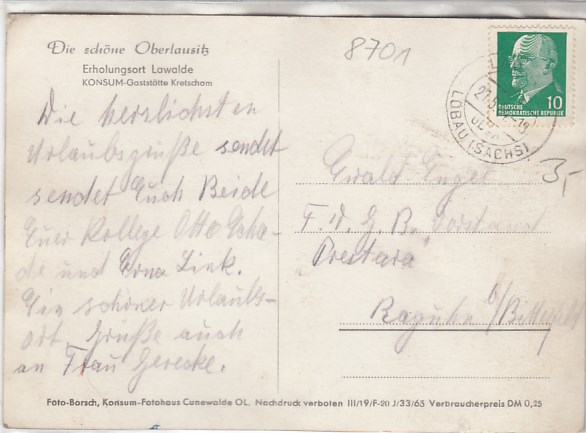 Die schöne Oberlausitz
Erholungsort Lawalde
KONSUM-Gaststätte Kretscham
8701
10
DEUTSCHE
DEMOKRATISCHE REPUBLIK
LÖBAU (SACHS)
3,-
Die herzlichsten
Urlaubsgrüße sendet
sendet Euch Beide
Euer Kollege Otto
und Erna Link.
Ein schöner Urlaubs-
ort. Grüße auch
an Frau Gerecke.
Ewald Engel
Raguhn b/Bitterfeld
Foto-Borsch, Konsum-Fotohaus Cunewalde OL. Nachdruck verboten III/19/F-20 J/33/65 Verbraucherpreis DM 0,25